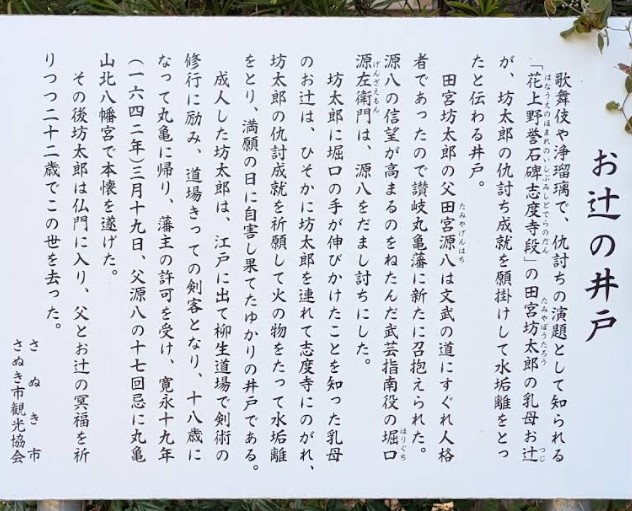 お辻の井戸
歌舞伎や浄瑠璃で、仇討ちの演題として知られる
「花上野誉石碑志度寺段」の田宮坊太郎の乳母お辻
が、坊太郎の仇討ち成就を願掛けして水垢離をとっ
たと伝わる井戸。
田宮坊太郎の父田宮源八は文武の道にすぐれ人格
者であったので讃岐丸亀藩に新たに召抱えられた。
源八の信望が高まるのをねたんだ武芸指南役の堀口
源左衛門は、源八をだまし討ちにした。
坊太郎に堀口の手が伸びかけたことを知った乳母
のお辻は、ひそかに坊太郎を連れて志度寺にのがれ、
坊太郎の仇討成就を祈願して火の物をたって水垢離
をとり、満願の日に自害し果てたゆかりの井戸である。
成人した坊太郎は、江戸に出て柳生道場で剣術の
修行に励み、道場きっての剣客となり、十八歳に
なって丸亀に帰り、藩主の許可を受け、寛永十九年
(一六四二年)三月十九日、父源八の十七回忌に丸亀
山北八幡宮で本懐を遂げた。
その後坊太郎は仏門に入り、父とお辻の冥福を祈
りつつ二十二歳でこの世を去った。
さぬき市
さぬき市観光協会